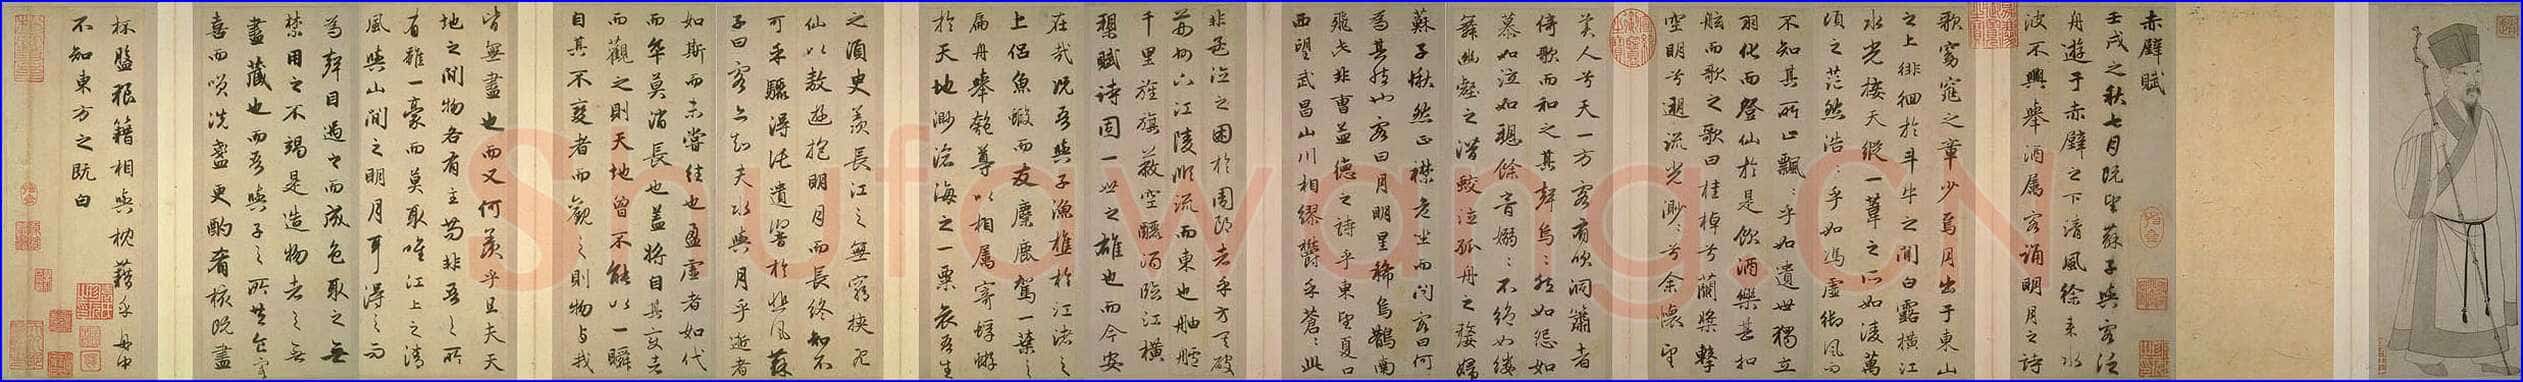 赤壁賦
壬戌之秋七月既望蘇子與客泛
舟遊于赤壁之下清風徐来水
波不興舉酒属客誦明月之詩
歌窈窕之章少焉月出于東山
之上徘徊於斗牛之間白露横江
水光接天縦一葦之所如凌萬
頃之茫然浩〻乎如馮虚御風而
不知其所止飄〻乎如遺世獨立
羽化而登仙於是飲酒樂甚扣
舷而歌之歌曰桂棹兮蘭槳擊
空明兮遡流光渺〻兮余懐望
美人兮天一方客有吹洞簫者
倚歌而和之其聲嗚〻然如怨如
慕如泣如訴餘音嫋〻不絶如縷
舞幽壑之潜蛟泣孤舟之嫠婦
蘇子愀然正襟危坐而問客曰何
為其然也客曰月明星稀烏鵲南
飛此非曹孟徳之詩乎東望夏口
西望武昌山川相繆欝乎蒼〻此
非孟德之困於周郎者乎方其破
荊州下江陵順流而東也舳艫
千里旌旗蔽空釃酒臨江横
槊賦詩固一世之雄也而今安
在哉况吾與子漁樵於江渚之
上侣魚蝦而友麋鹿駕一葉之
扁舟舉匏尊以相属寄蜉蝣
於天地渺滄海之一粟哀吾生
之須臾羨長江之無窮挟飛
仙以敖遊抱明月而長終知不
可乎驟得託遺響於悲風蘇
子曰客亦知夫水與月乎逝者
如斯而未嘗往也盈虚者如代
而卒莫消長也蓋将自其変者
而觀之則天地曾不能以一瞬
自其不变者而觀之則物与我
皆無盡也而又何羨乎且夫天
地之間物各有主苟非吾之所
有雖一豪而莫取唯江上之清
風與山間之明月耳得之而
為聲目遇之而成色取之無
禁用之不竭是造物者之無
盡藏也而吾與子之所共食客
喜而咲洗盞更酌肴核既盡
杯盤狼籍相與枕藉乎舟中
不知東方之既白
Shufawang.CN